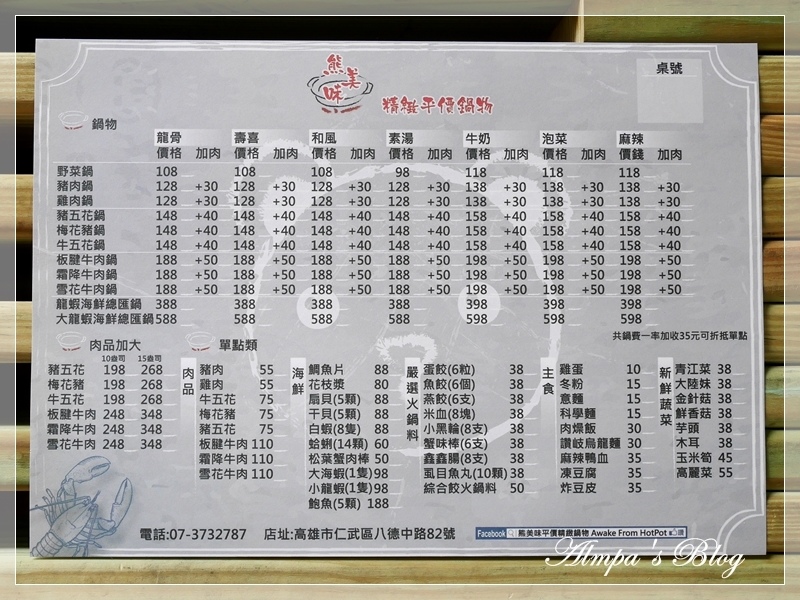 熊美味
精緻平價鍋物
桌號
鍋物
龍骨 壽喜 和風 素湯 牛奶 泡菜 麻辣
價格 加肉 價格 加肉 價格 加肉 價格 加肉 價格 加肉 價格 加肉 價錢 加肉
野菜鍋 108 108 108 98 118 118 118
豬肉鍋 128 +30 128 +30 128 +30 128 +30 138 +30 138 +30 138 +30
雞肉鍋 128 +30 128 +30 128 +30 128 +30 138 +30 138 +30 138 +30
豬五花鍋 148 +40 148 +40 148 +40 148 +40 158 +40 158 +40 158 +40
梅花豬鍋 148 +40 148 +40 148 +40 148 +40 158 +40 158 +40 158 +40
牛五花鍋 148 +40 148 +40 148 +40 148 +40 158 +40 158 +40 158 +40
板腱牛肉鍋 188 +50 188 +50 188 +50 188 +50 198 +50 198 +50 198 +50
霜降牛肉鍋 188 +50 188 +50 188 +50 188 +50 198 +50 198 +50 198 +50
雪花牛肉鍋 188 +50 188 +50 188 +50 188 +50 198 +50 198 +50 198 +50
龍蝦海鮮總匯鍋 388 388 388 388 398 398 398
大龍蝦海鮮總匯鍋 588 588 588 588 598 598 598
共鍋費一率加收35元可折抵單點
肉品加大
10盎司 15盎司
豬五花 198 268
梅花豬 198 268
牛五花 198 268
板腱牛肉 248 348
霜降牛肉 248 348
雪花牛肉 248 348
單點類
肉品
豬肉 55
雞肉 55
牛五花 75
梅花豬 75
豬五花 75
板腱牛肉 110
霜降牛肉 110
雪花牛肉 110
海鮮
鯛魚片 88
花枝漿 80
扇貝(5顆) 88
干貝(5顆) 88
白蝦(8隻) 88
蛤蜊(14顆) 60
松葉蟹肉棒 50
大海蝦(1隻) 98
小龍蝦(1隻) 98
鮑魚(5顆) 188
嚴選火鍋料
蛋餃(6粒) 38
魚餃(6個) 38
燕餃(6支) 38
米血(8塊) 38
小黑輪(8支) 38
蟹味棒(6支) 38
鑫鑫腸(8支) 38
虱目魚丸(10顆) 38
綜合餃火鍋料 50
主食
雞蛋 10
冬粉 15
意麵 15
科學麵 15
肉燥飯 30
讚岐烏龍麵 30
麻辣鴨血 35
凍豆腐 35
炸豆皮 35
新鮮蔬菜
青江菜 38
大陸妹 38
金針菇 38
鮮香菇 38
芋頭 38
木耳 38
玉米筍 45
高麗菜 55
電話:07-3732787 店址:高雄市仁武區八德中路82號
Facebook 熊美味平價精緻鍋物 Awake From HotPot 讚
Almpa 's Blog